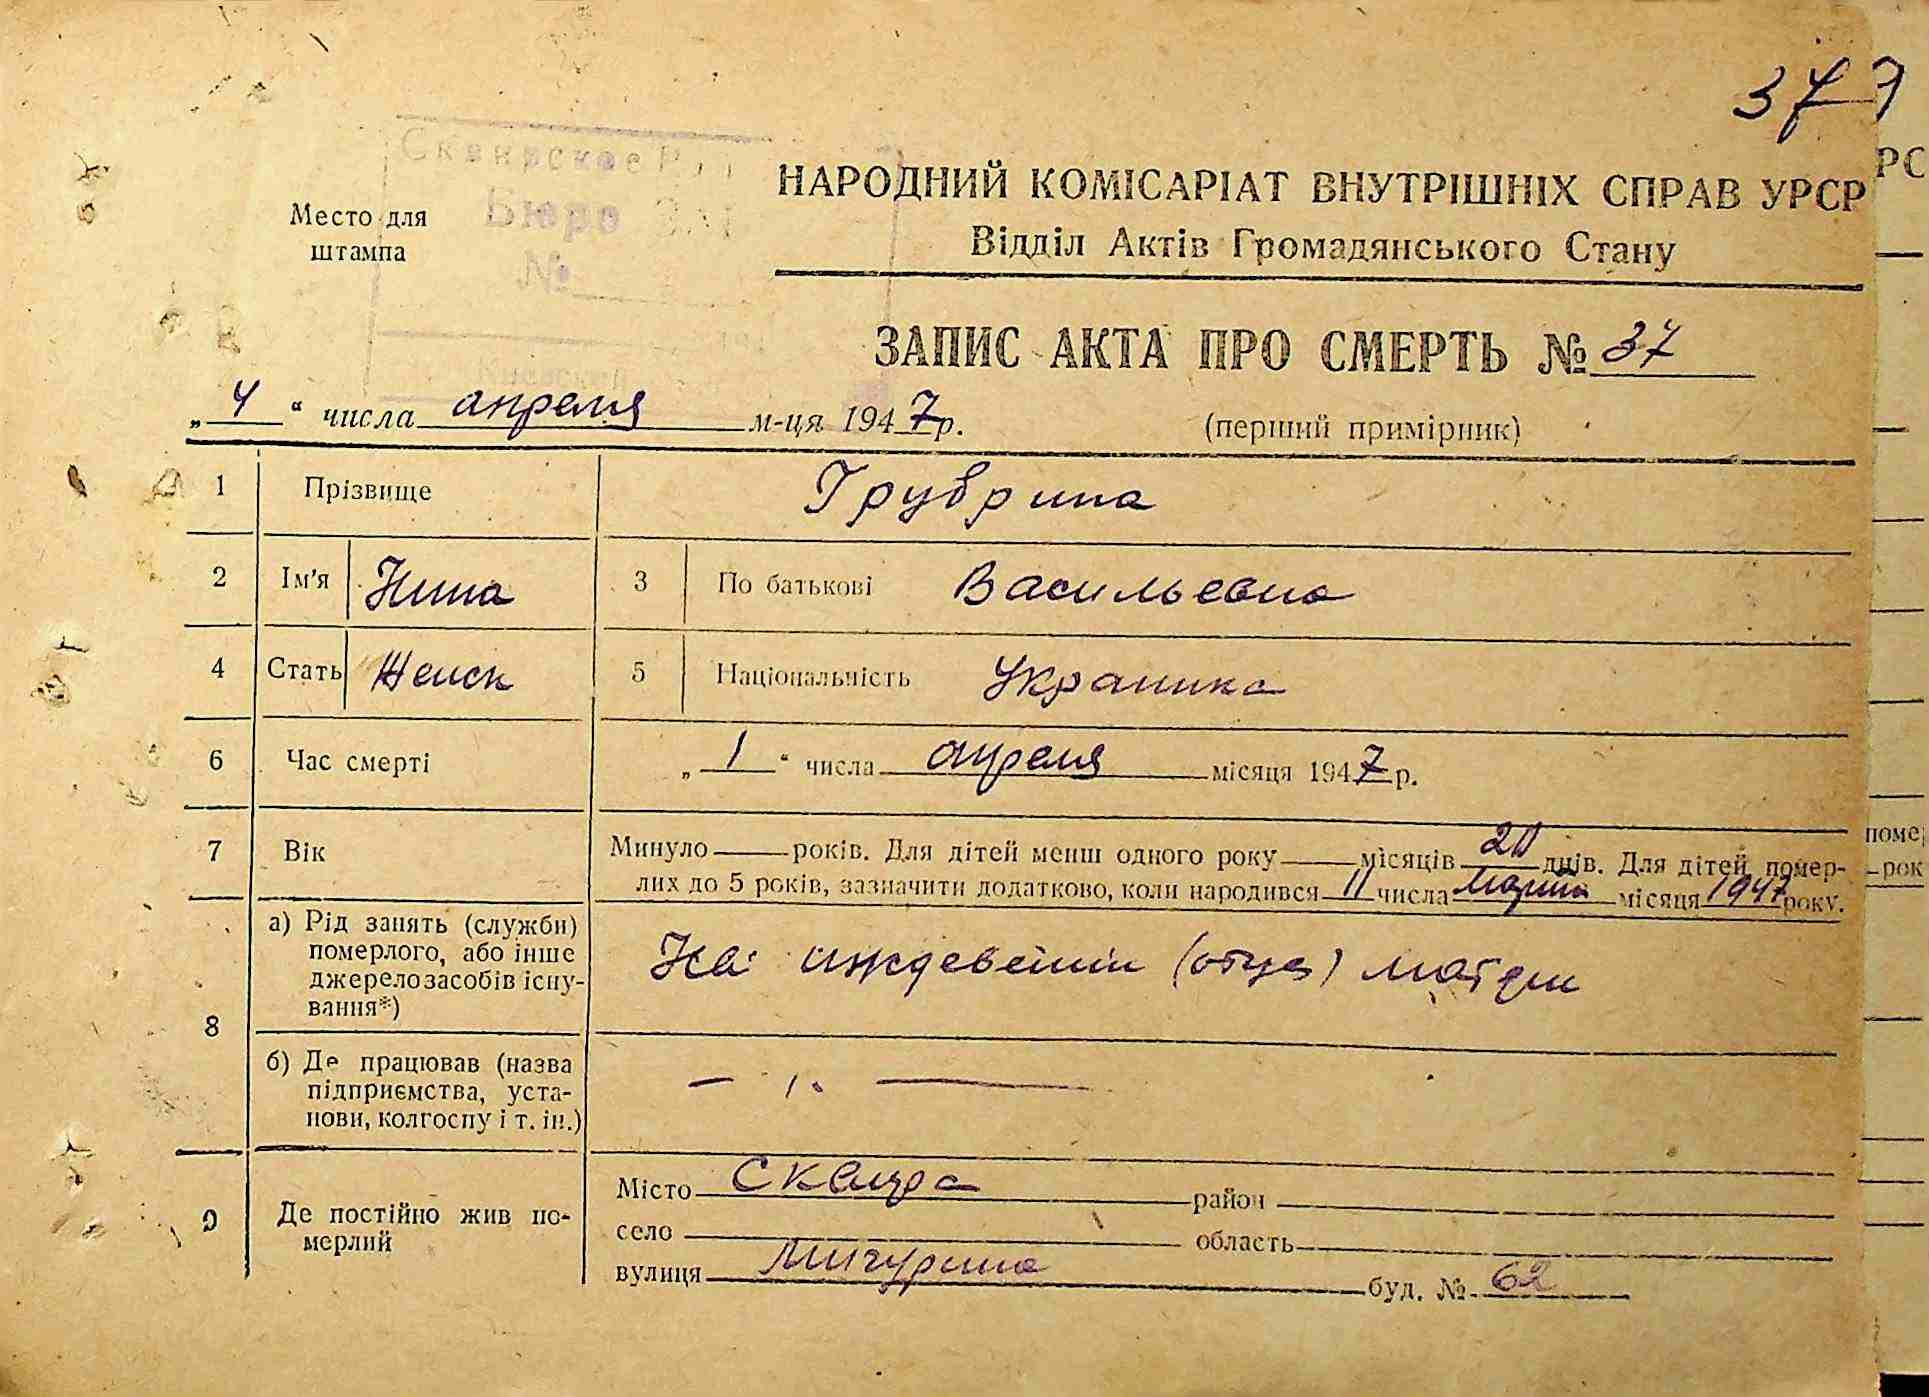 377
Сквирское Р
Бюро ЗАГ
№
Место для
штампа
НАРОДНИЙ КОМІСАРІАТ ВНУТРІШНІХ СПРАВ УРСР
Відділ Актів Громадянського Стану
ЗАПИС АКТА ПРО СМЕРТЬ № 37
„ 4 “ числа апреля м-ця 1947 р. (перший примірник)
1 Прізвище Грубрина
2 Ім'я Нина 3 По батькові Васильевна
4 Стать Женск 5 Національність Украинка
6 Час смерті „ 1 “ числа апреля місяця 1947 р.
7 Вік Минуло років. Для дітей менш одного року місяців 20 днів. Для дітей помер-
лих до 5 років, зазначити додатково, коли народився 11 числа марта місяця 1947 року.
8 а) Рід занять (служби)
померлого, або інше
джерело засобів існу-
вання*)
На иждевении (отца) матери
б) Де працював (назва
підприємства, уста-
нови, колгоспу і т. ін.)
9 Де постійно жив по-
мерлий
Місто Сквира район
село область
вулиця Мичурина буд. № 62
РС
поме
рок